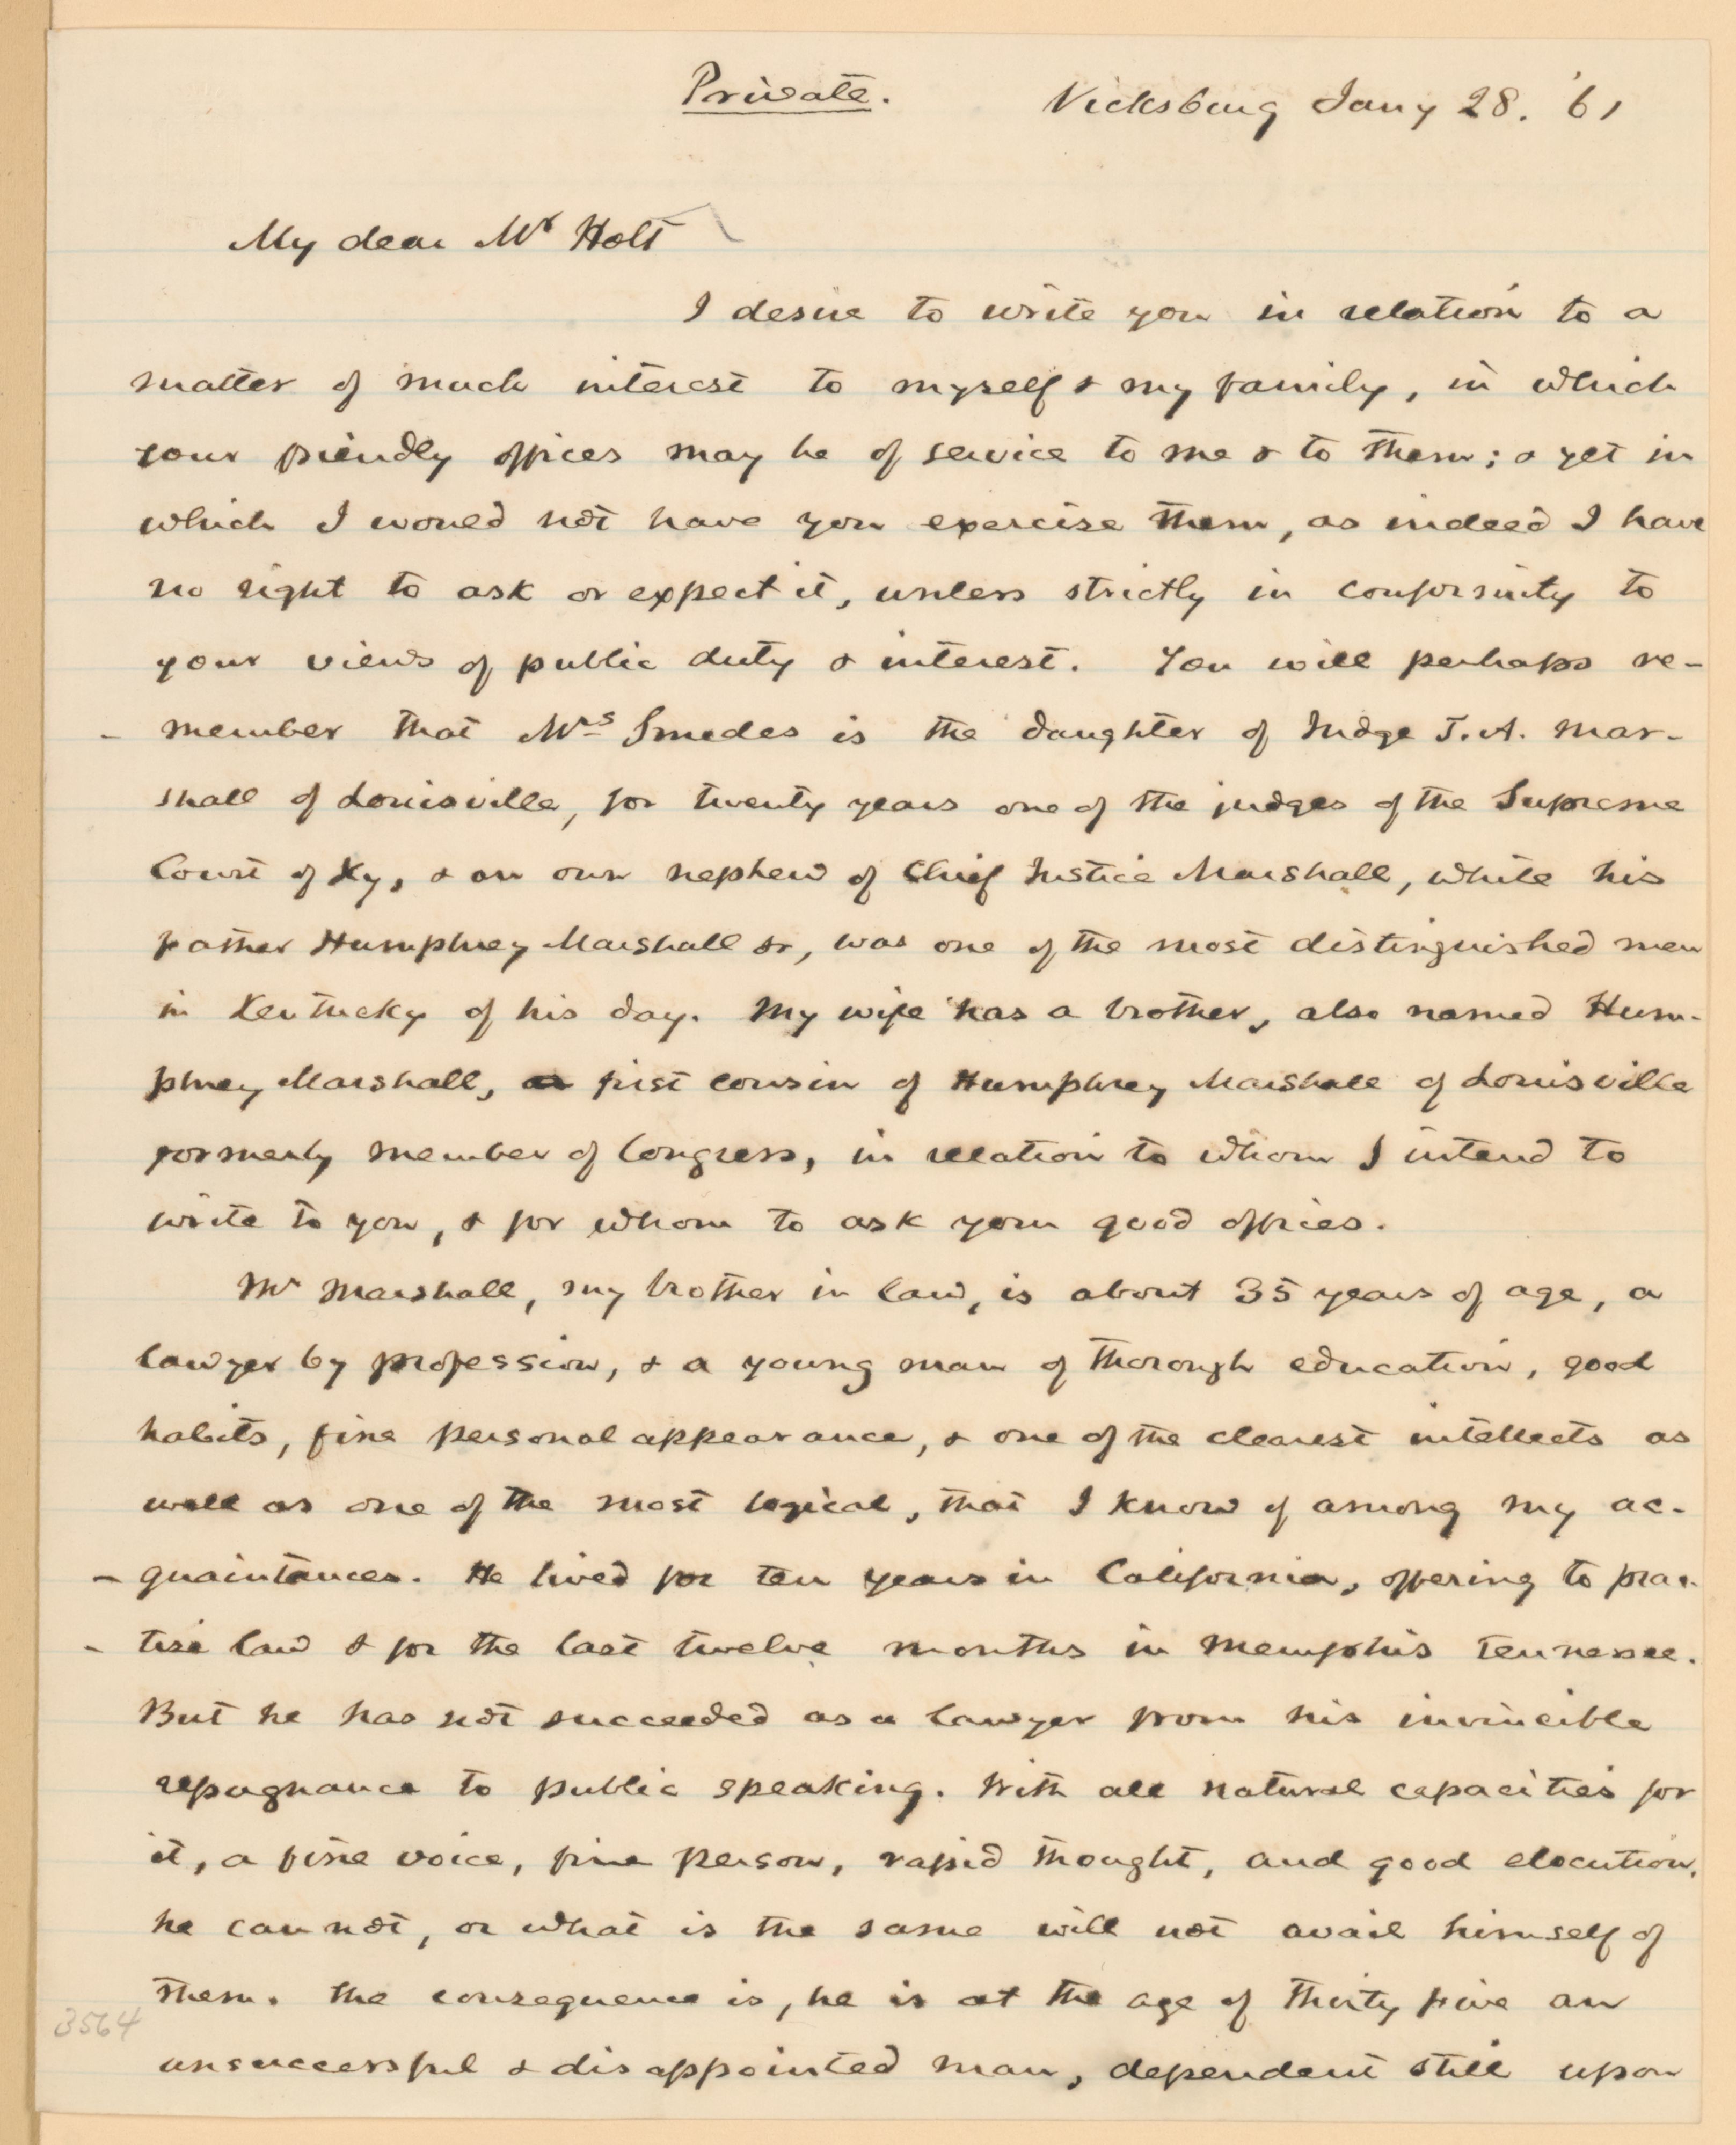 Private. Vicksburg Jany 28. '61
My dear Mr Holt
I desire to write you in relation to a
matter of much interest to myself & my family, in which
your friendly offices may be of service to me & to them; & yet in
which I would not have you exercise them, as indeed I have
no right to ask or expect it, unless strictly in conformity to
your views of public duty & interest. You will perhaps re-
- member that Mrs Smedes is the daughter of Judge T. A. Mar-
shall of Louisville, for twenty years one of the judges of the Supreme
Court of Ky, & an own nephew of Chief Justice Marshall, while his
father Humphrey Marshall sr, was one of the most distinguished men
in Kentucky of his day. My wife has a brother, also named Hum-
phrey Marshall, first cousin of Humphrey Marshall of Louisville
formerly member of Congress, in relation to whom I intend to
write to you, & for whom to ask your good offices.
Mr Marshall, my brother in law, is about 35 years of age, a
lawyer by profession, & a young man of thorough education, good
habits, fine personal appearance, & one of the clearest intellects as
well as one of the most logical, that I know of among my ac-
- quaintances. He lived for ten years in California, offering to prac-
- tise law & for the last twelve months in Memphis Tennessee.
But he has not succeeded as a lawyer from his invincible
repugnance to public speaking. With all natural capacities for
it, a fine voice, fine person, rapid thought, and good elocution,
he can not, or what is the same will not avail himself of
them. The consequence is, he is at the age of thirty five an
3564
unsuccessful & disappointed man, dependent still upon